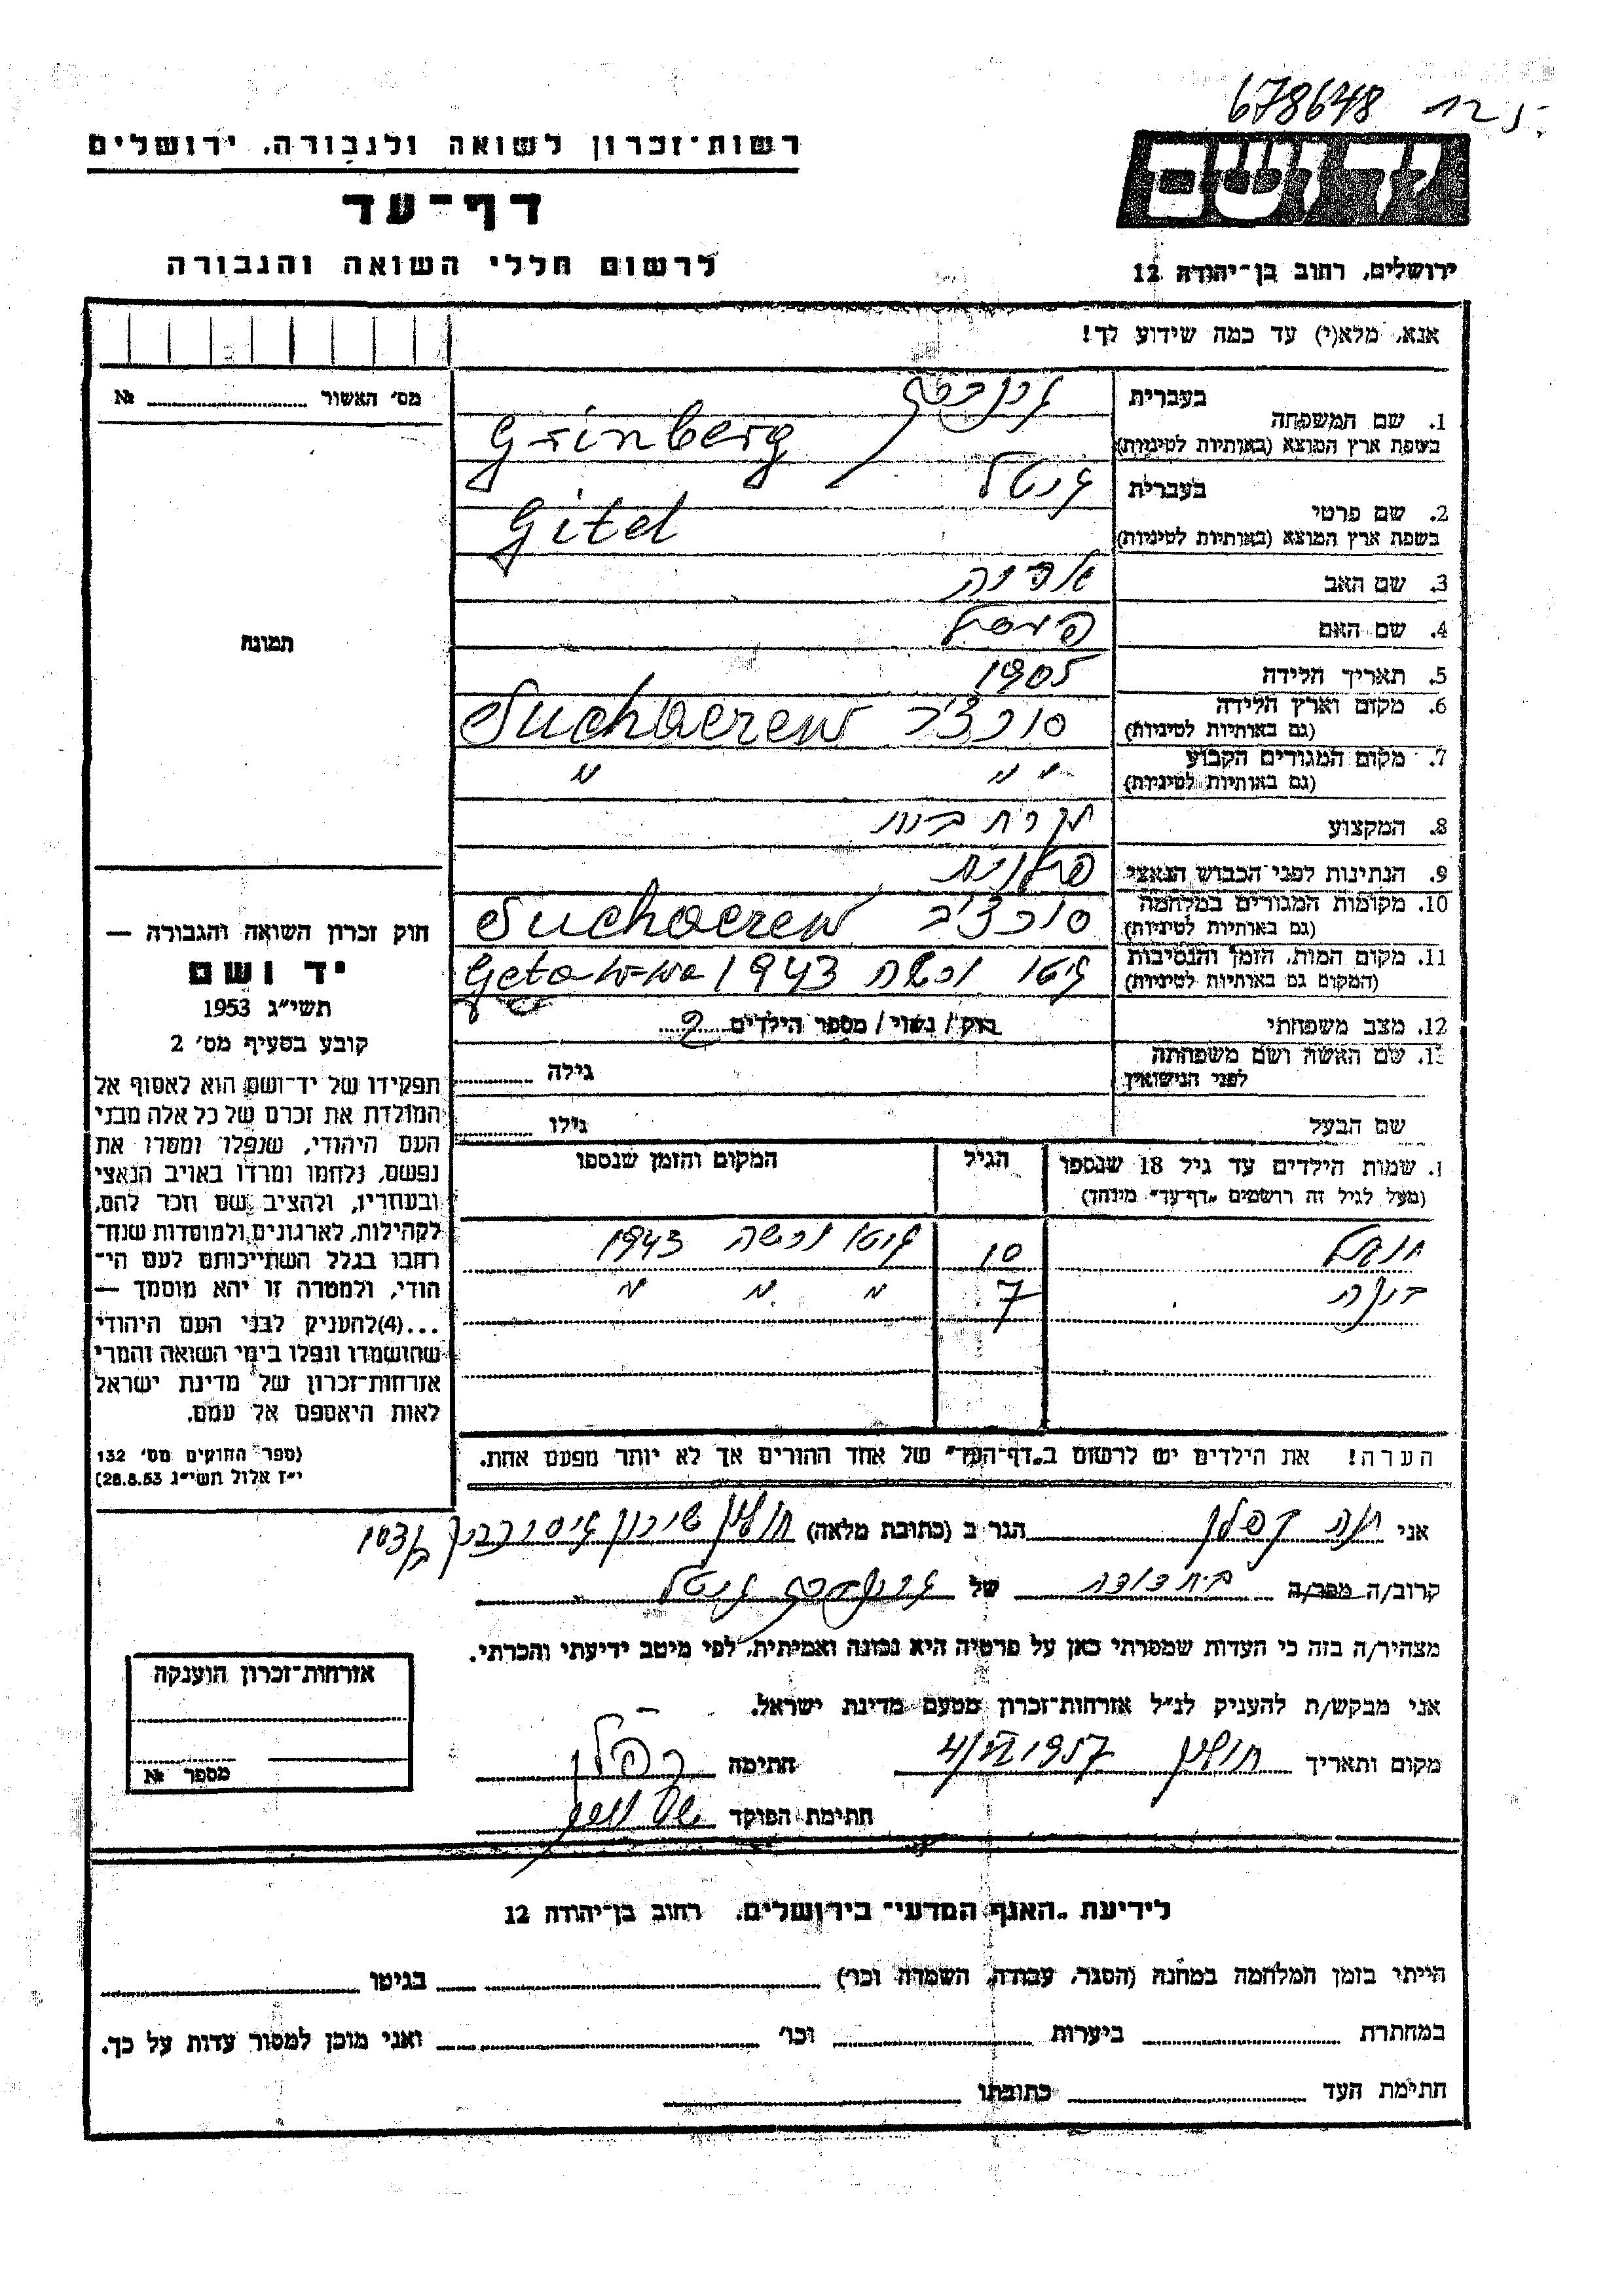 678648
רשות-זכרון לשואה ולגבורה, ירושלים
דף-עד
לרשום חללי השואה והגבורה
יד ושם
ירושלים, רחוב בן-יהודה 12
אנא, מלא(י) עד כמה שידוע לך!
מס' האשור № 
1. שם המשפחה בעברית גרינברג
בשפת ארץ המוצא (באותיות לטיניות) Grinberg
2. שם פרטי בעברית גיטל
בשפת ארץ המוצא (באותיות לטיניות) Gitel
3. שם האב אריה
4. שם האם
5. תאריך הלידה 1905
6. מקום וארץ הלידה (גם באותיות לטיניות) סוכצ'ב Suchaerew
7. מקום המגורים הקבוע (גם באותיות לטיניות) " "
8. המקצוע עקרת בית
9. הנתינות לפני הכבוש הנאצי פולנית
10. מקומות המגורים במלחמה (גם באותיות לטיניות) סוכצ'ב Suchaerew
11. מקום המות, הזמן והנסיבות (המקום גם באותיות לטיניות) גיטו ורשה 1943 Geto W-wa
12. מצב משפחתי רוק / נשוי / מספר הילדים 2
13. שם האשה ושם משפחתה לפני הנישואין גילה
שם הבעל גילו
שמות הילדים עד גיל 18 שנספו (מעל לגיל זה רושמים "דף-עד" מיוחד) הגיל המקום והזמן שנספו
10 גיטו ורשה 1943
7 " " " "
הערה! את הילדים יש לרשום ב"דף-העד" של אחד ההורים אך לא יותר מפעם אחת.
תמונה
חוק זכרון השואה והגבורה —
יד ושם
תשי"ג 1953
קובע בסעיף מס' 2
תפקידו של יד-ושם הוא לאסוף אל
המולדת את זכרם של כל אלה מבני
העם היהודי, שנפלו ומסרו את
נפשם, נלחמו ומרדו באויב הנאצי
ובעוזריו, ולהציב שם וזכר להם,
לקהילות, לארגונים ולמוסדות שנח-
רבו בגלל השתייכותם לעם הי-
הודי, ולמטרה זו יהא מוסמך —
...(4)להעניק לבני העם היהודי
שהושמדו ונפלו בימי השואה והמרי
אזרחות-זכרון של מדינת ישראל
לאות היאספם אל עמם.
(ספר החוקים מס' 132
י"ז אלול תשי"ג 28.8.53)
אני חנה קפלן הגר ב (כתובת מלאה) חולון שיכון
קרוב/ה מכר/ה בת דודה של גרינברג גיטל
מצהיר/ה בזה כי העדות שמסרתי כאן על פרטיה היא נכונה ואמיתית, לפי מיטב ידיעתי והכרתי.
אני מבקש/ת להעניק לנ"ל אזרחות-זכרון מטעם מדינת ישראל.
מקום ותאריך חולון 4/VI 1957 חתימה קפלן
חתימת הפוקד
אזרחות-זכרון הוענקה
מספר №
לידיעת "האגף המדעי" בירושלים, רחוב בן-יהודה 12
הייתי בזמן המלחמה במחנה (הסגר, עבודה, השמדה וכו') בגיטו
במחתרת ביערות וכו' ואני מוכן למסור עדות על כך.
חתימת העד כתובתו